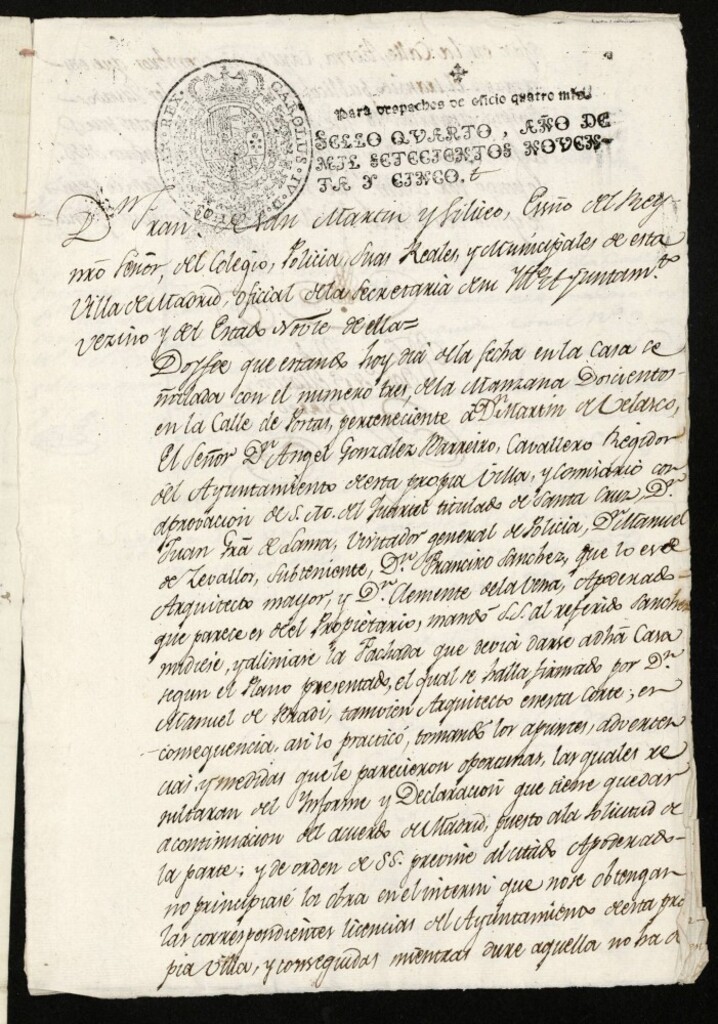 CAROLUS IV D G HISPANIAR REX
Para despachos de oficio quatro mrs.
SELLO QVARTO, AÑO DE
MIL SETECIENTOS NOVEN-
TA Y CINCO.
Dn. Fran. de San Martin y Siliceo, Essno del Rey
nro Señor, del Colegio, Policia, Suas Reales, y Municipales de esta
Villa de Madrid, oficial de la Secretaria de su Ayuntam.to
vezino y del Estado Noble de ella=
Doy fee que estando hoy dia de la fecha en la Casa se
ñalada con el numero tres, de la Manzana Doscientos
en la Calle de Postas, perteneciente á Dn. Martin de Velasco,
El Señor Dn. Angel Gonzalez Barreiro, Cavallero Regidor
del Ayuntamiento de esta propia Villa, y Comisario con
aprovacion de S. M. del Quartel titulado de Santa Cruz, Dn.
Juan Frã de Lama, Visitador general de Policia, Dn. Manuel
de Zevallos, Subteniente, Dn. Francisco Sanchez, que lo es de
Arquitecto mayor, y Dn. Clemente de la Vena, Apoderado
que parece es del Propietario, mandó S.S. al referido Sanchez
midiese, y aliniase la Fachada que devia darse a dhã Casa
segun el Plano presentado, el qual se halla firmado por Dn.
Manuel de Bradi, tamvien Arquitecto en esta Corte; en
consequencia, asi lo practicó, tomando los apuntes, adverten
cias, y medidas que le parecieron oportunas, las quales re
sultaran del Informe y Declaracion que tiene quedar
acontinuacion del acuerdo de Madrid, puesto a la solicitud de
la parte; y de orden de S.S. previne al citado Apoderado
no principiase la obra en el interin que no se obtengan
las correspondientes licencias del Ayuntamiento de esta pro
pia Villa, y conseguidas mientras dure aquella no ha d